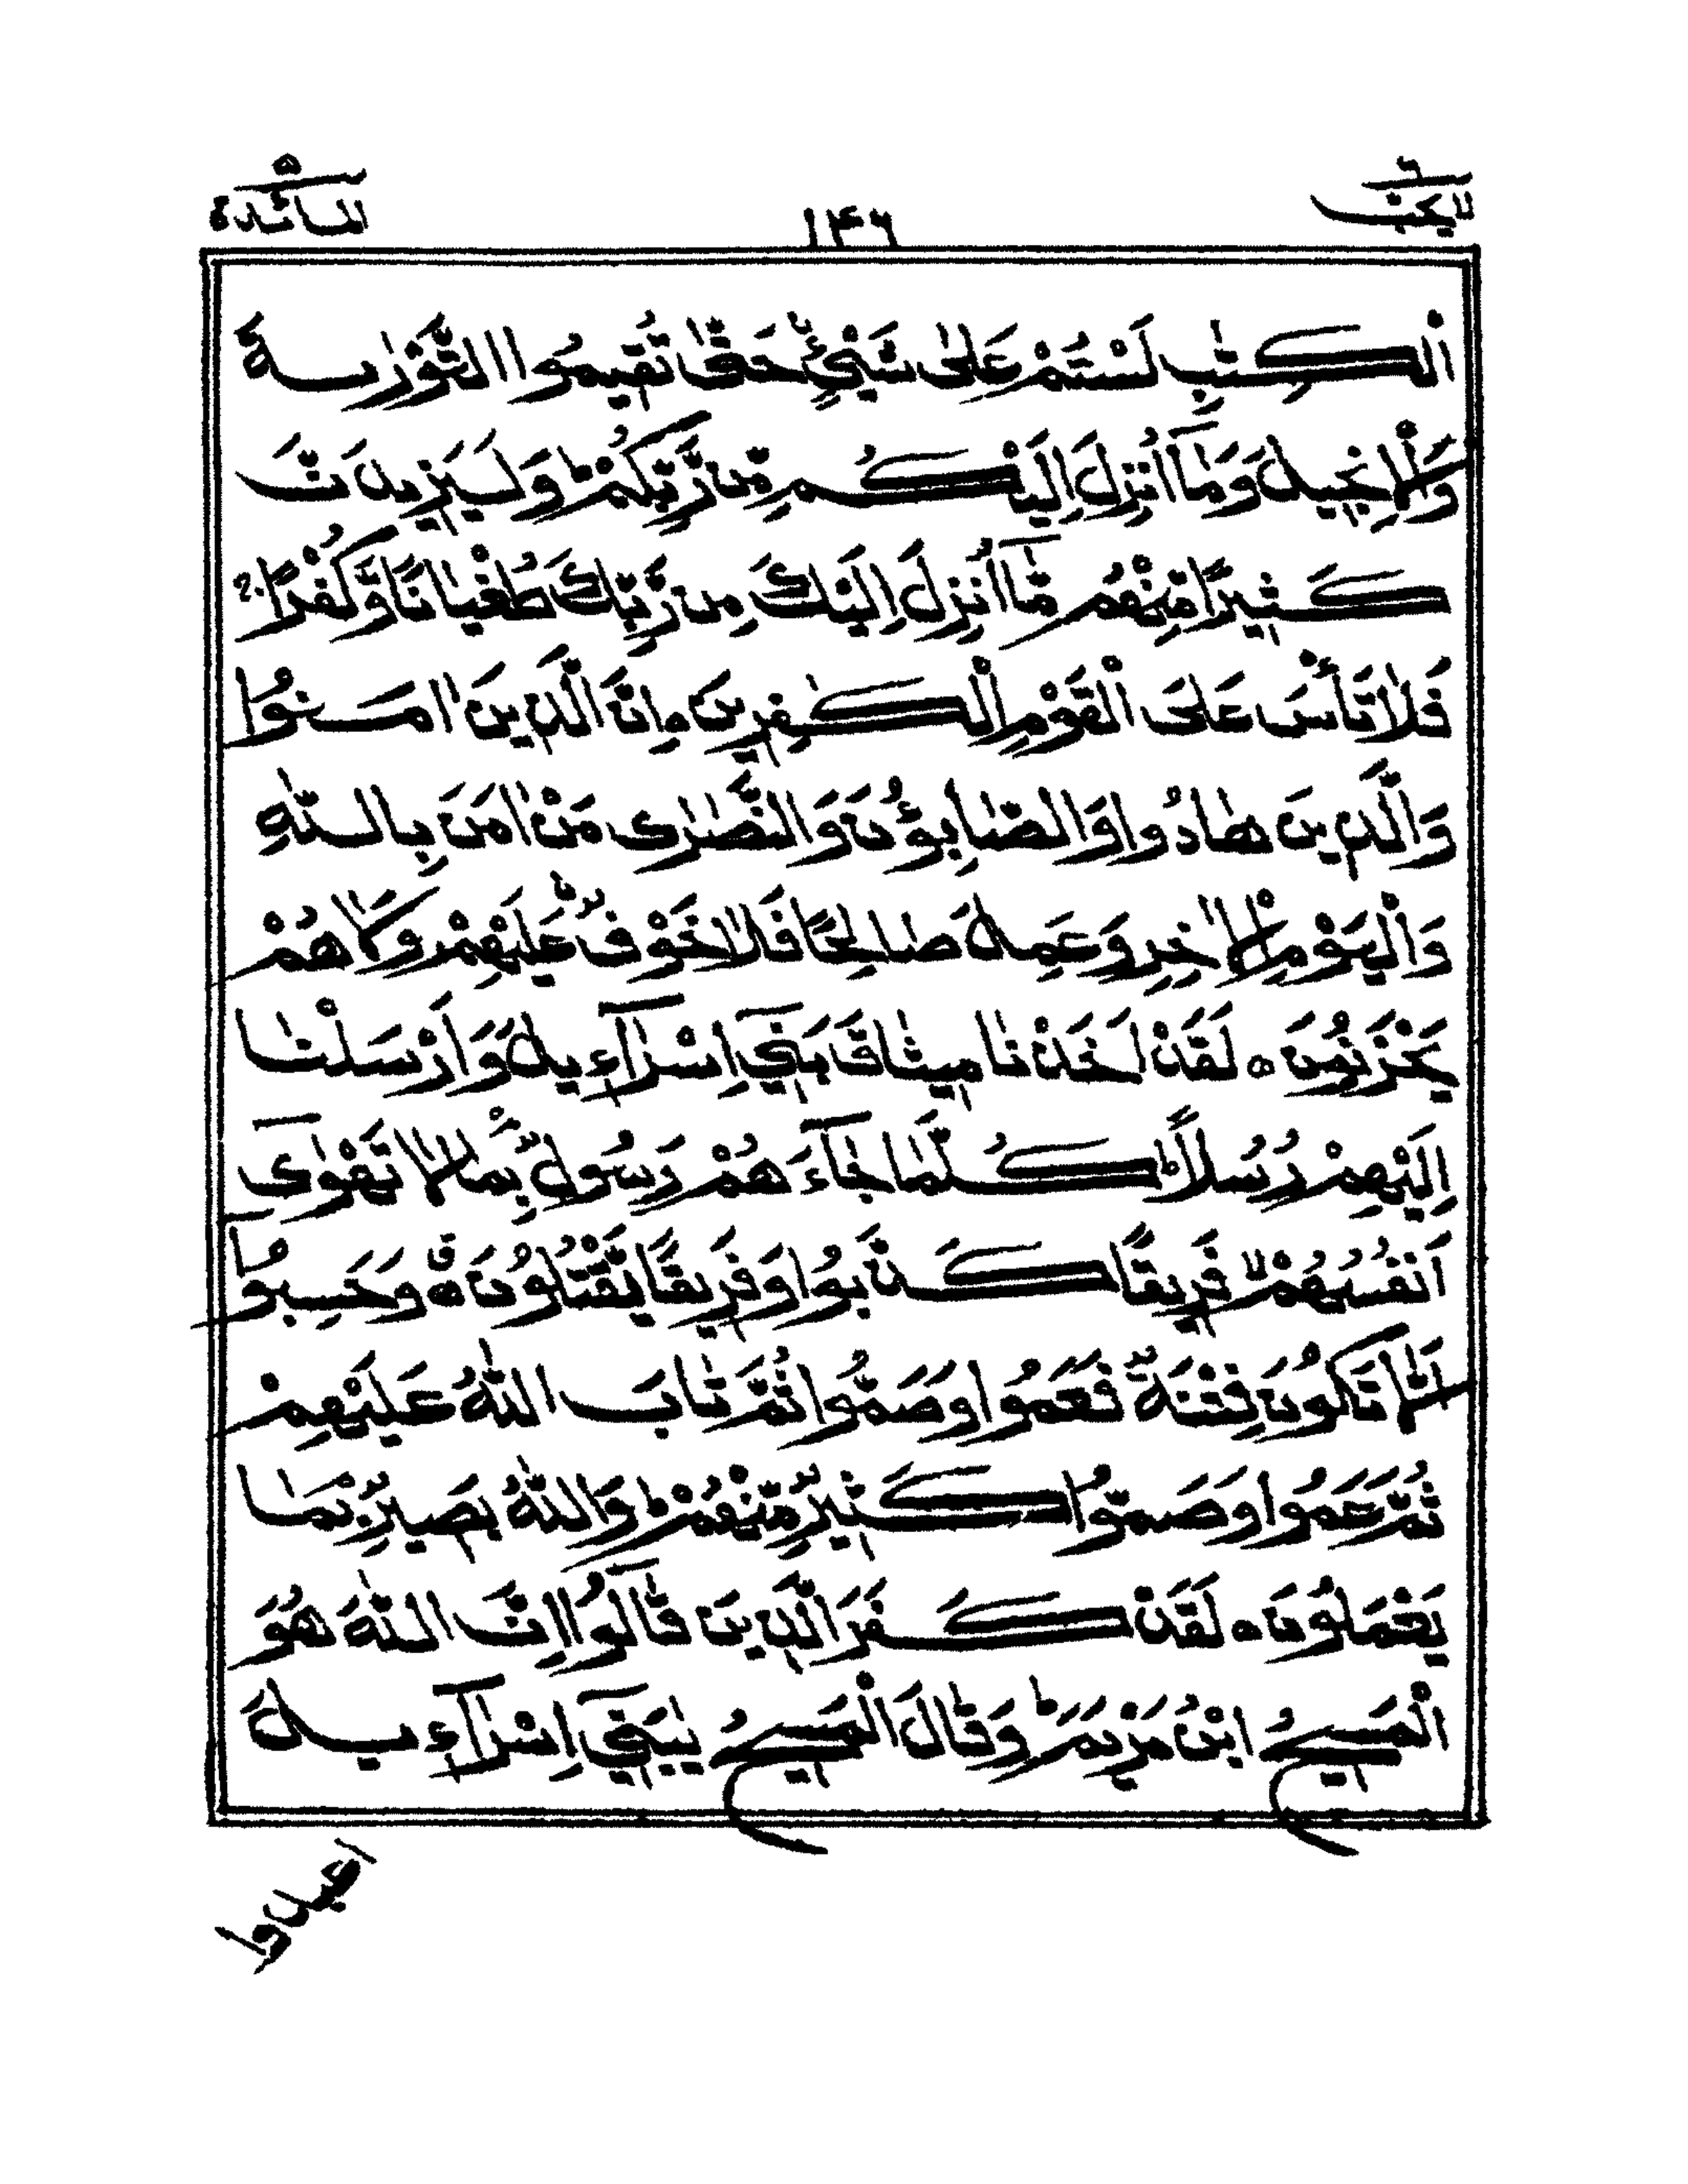 لا یحب ٦ ١٤٦ المائدة ٥
الْكِتٰبِ لَسْتُمْ عَلٰى شَيْئٍ حَتّٰى تُقِيمُوا التَّوْرٰىةَ
وَالْاِنْجِيلَ وَمَآ اُنْزِلَ اِلَيْكُمْ مِّنْ رَّبِّكُمْ ؕ وَلَيَزِيدَنَّ
كَثِيرًا مِّنْهُمْ مَّآ اُنْزِلَ اِلَيْكَ مِنْ رَّبِّكَ طُغْيَانًا وَّكُفْرًا ۚ
فَلَا تَأْسَ عَلَى الْقَوْمِ الْكٰفِرِينَ ه اِنَّ الَّذِينَ اٰمَنُوْا
وَالَّذِينَ هَادُوا وَالصَّابِؤُنَ وَالنَّصٰرٰى مَنْ اٰمَنَ بِاللّٰهِ
وَالْيَوْمِ الْاٰخِرِ وَعَمِلَ صَالِحًا فَلَا خَوْفٌ عَلَيْهِمْ وَلَا هُمْ
يَحْزَنُونَ ه لَقَدْ اَخَذْنَا مِيثَاقَ بَنِيٓ اِسْرَآءِيلَ وَاَرْسَلْنَا
اِلَيْهِمْ رُسُلًا ؕ كُلَّمَا جَآءَهُمْ رَسُولٌۢ بِمَا لَا تَهْوٰىٓ
اَنْفُسُهُمْ ۙ فَرِيقًا كَذَّبُوا وَفَرِيقًا يَّقْتُلُونَ ه ق وَحَسِبُوٓا
اَلَّا تَكُونَ فِتْنَةٌ فَعَمُوا وَصَمُّوا ثُمَّ تَابَ اللّٰهُ عَلَيْهِمْ
ثُمَّ عَمُوا وَصَمُّوا كَثِيرٌ مِّنْهُمْ ؕ وَاللّٰهُ بَصِيرٌۢ بِمَا
يَعْمَلُونَ ه لَقَدْ كَفَرَ الَّذِينَ قَالُوٓا اِنَّ اللّٰهَ هُوَ
الْمَسِيحُ ابْنُ مَرْيَمَ ؕ وَقَالَ الْمَسِيحُ يٰبَنِيٓ اِسْرَآءِيلَ
اعبدوا